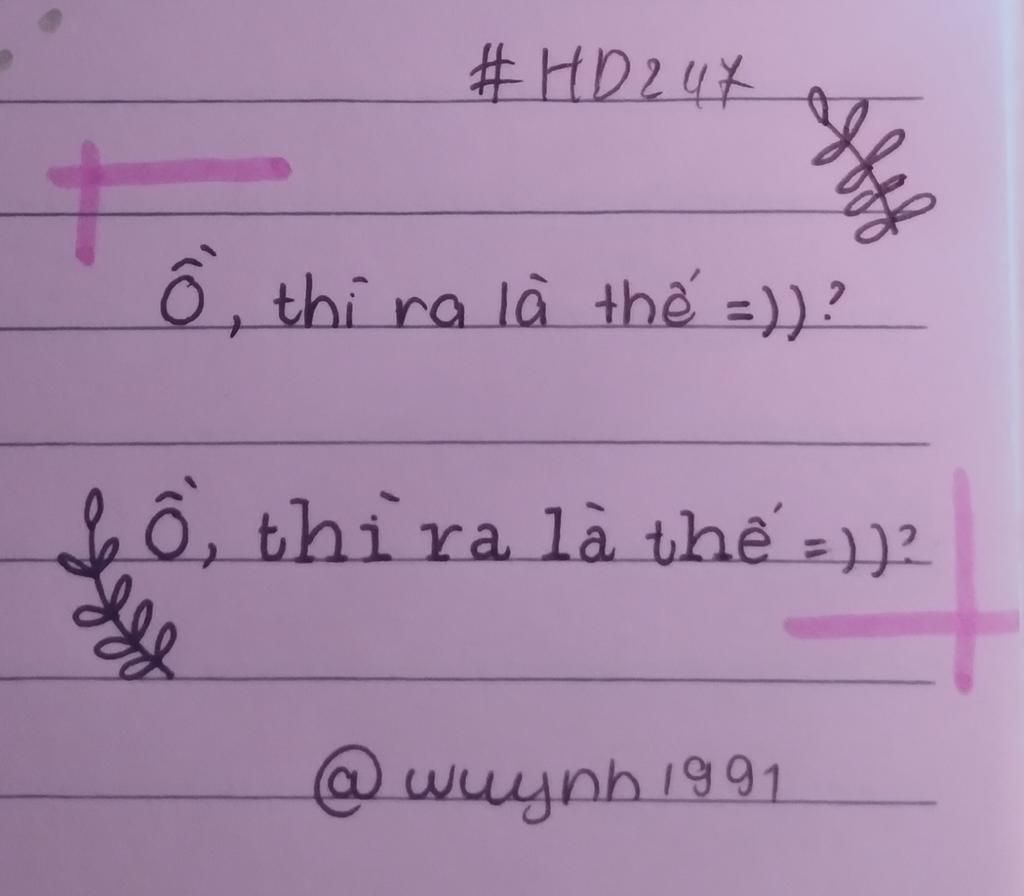 #HD247
Ồ, thì ra là thế =))?
Ồ, thì ra là thế =))?
@wuynh1991